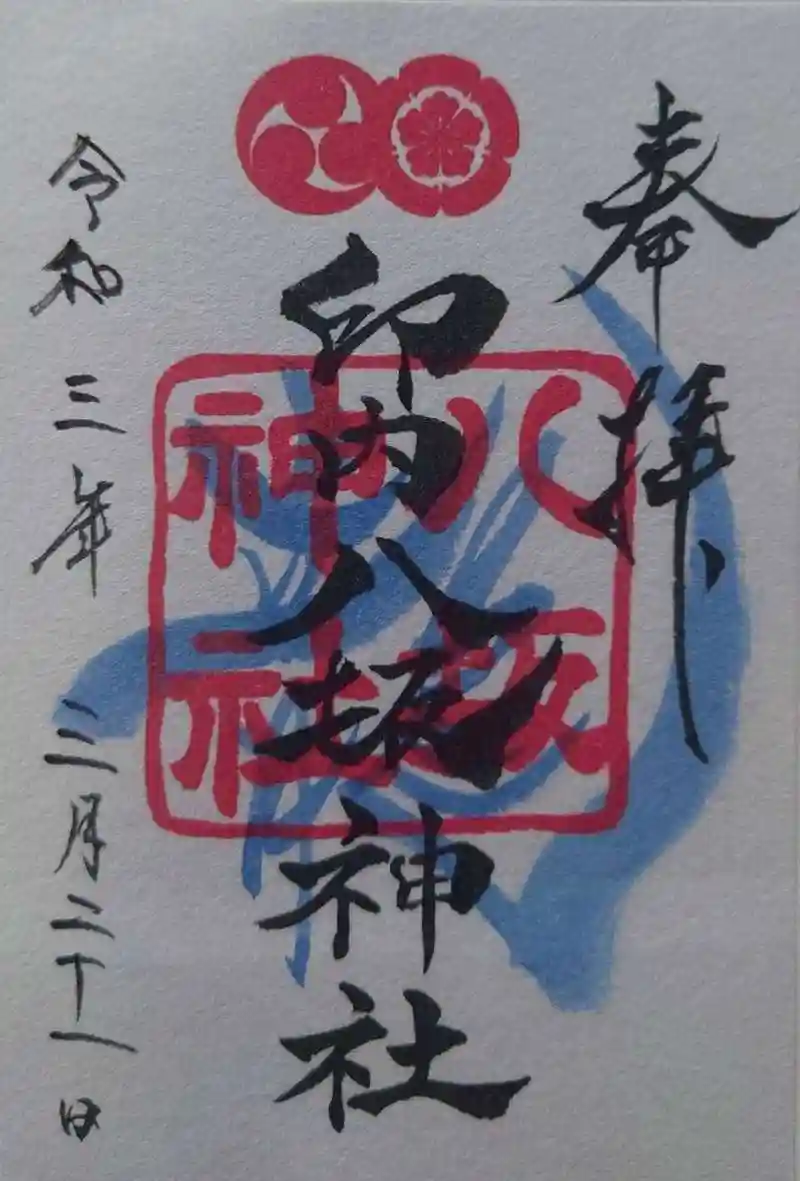 奉拝
印内八坂神社
八坂
神社
令和三年三月二十一日